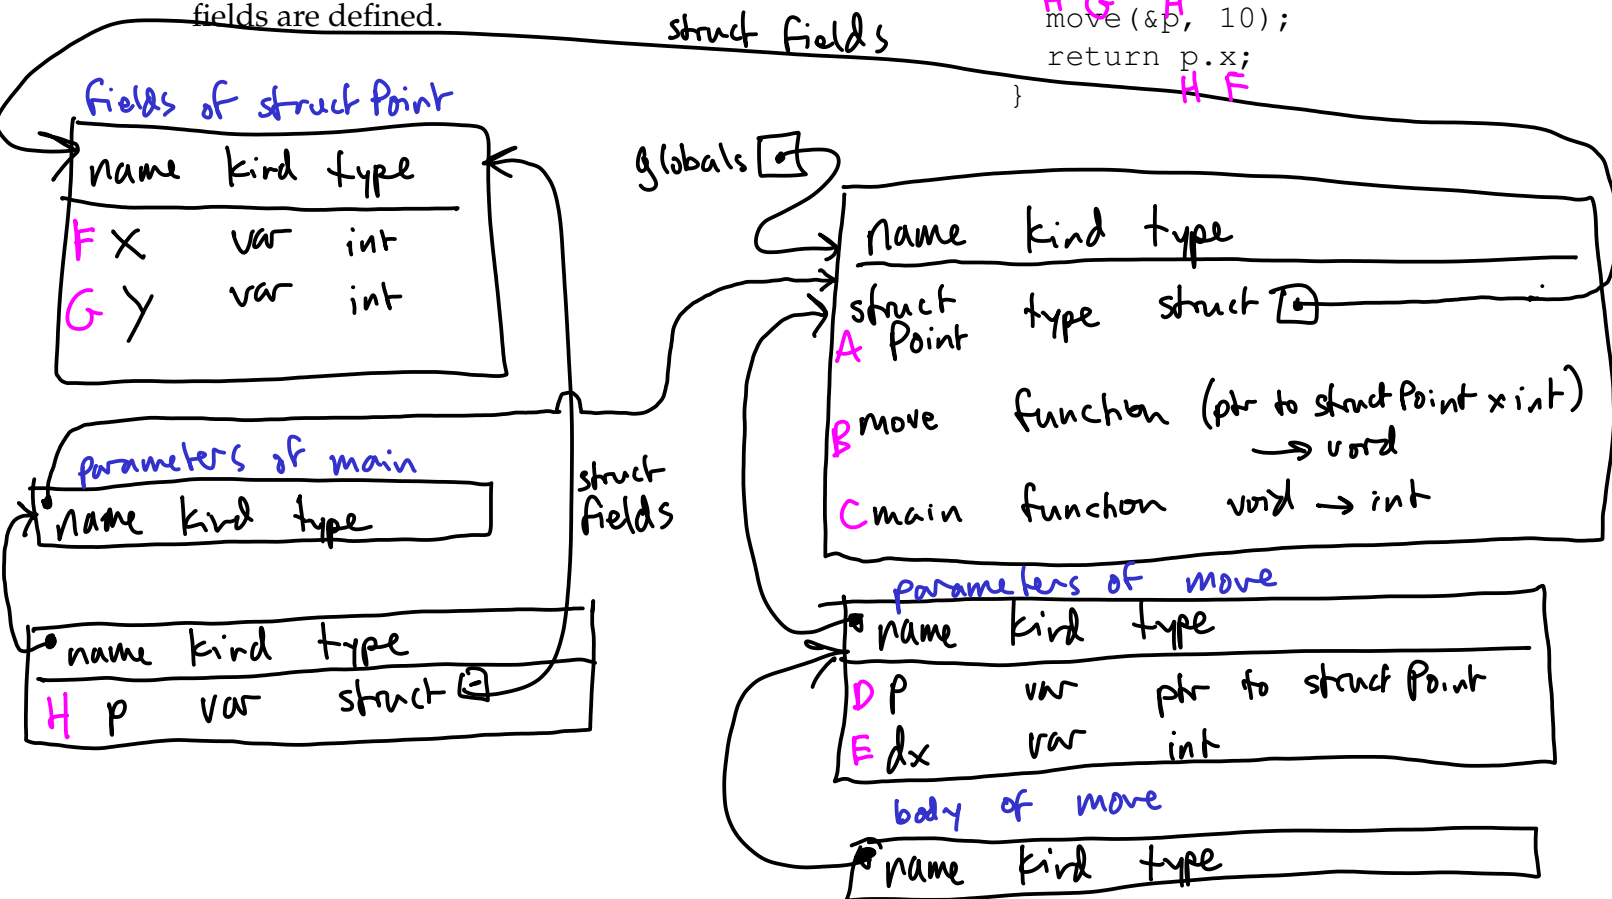 fields are defined.
H G H
move(&p, 10);
return p.x;
H F
}
struct fields
fields of struct Point
name kind type
F x var int
G y var int
globals
name kind type
struct Point type struct
A
B move function (ptr to struct Point x int)
→ void
C main function void → int
parameters of main
name kind type
struct
fields
name kind type
H p var struct
parameters of move
name kind type
D p var ptr to struct Point
E dx var int
body of move
name kind type